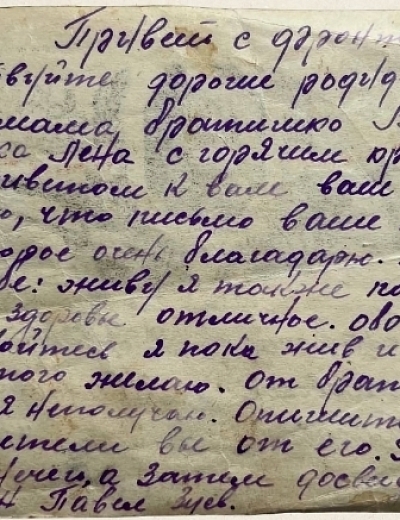 Привет с фронт
вуйте дорогие род
мама, братишко
ка Лена с горячим кр
приветом к вам ваш
ю, что письмо ваше
орое очень благодарю.
бе: живу я также по
Здоровье отличное. обо
койтесь я пока жив и
того желаю. От брат
я неполучаю. Опишит
чители вы от его.
учен, а Затем досви
н Павел Зуев.